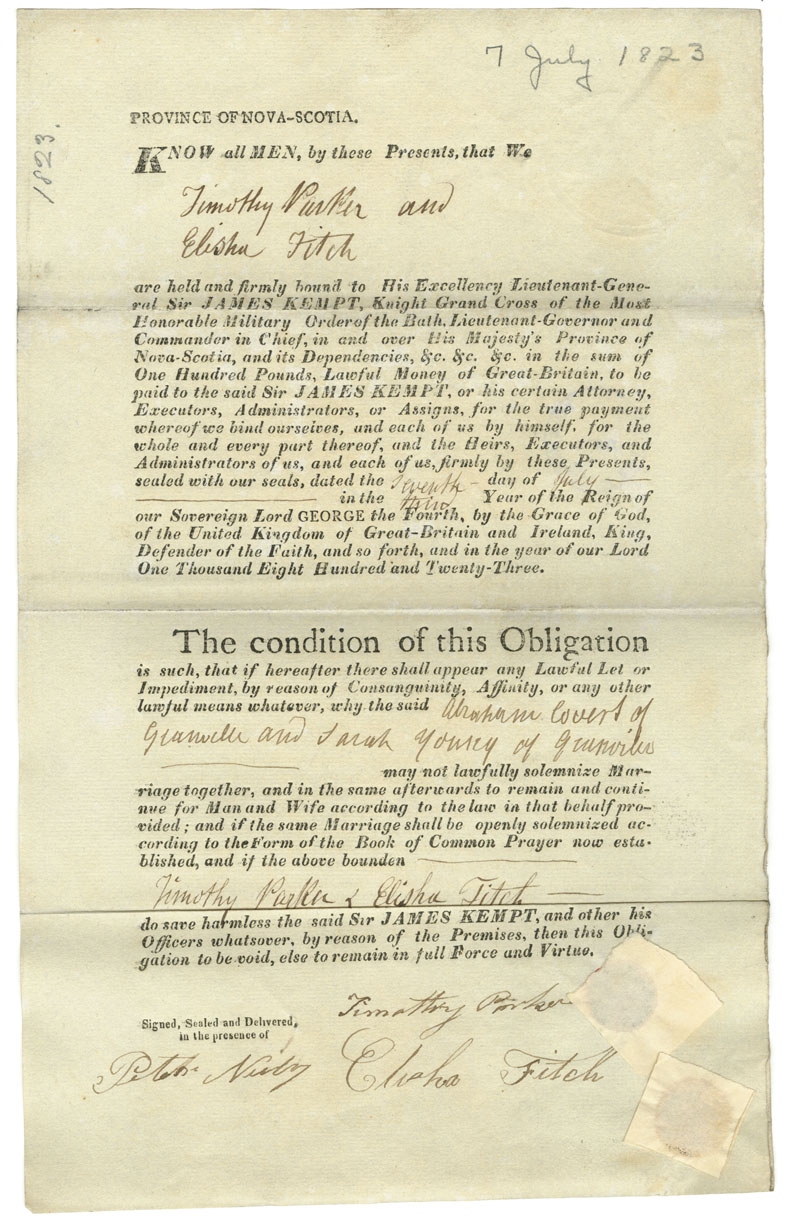 7 July 1823
1823.
PROVINCE OF NOVA-SCOTIA.
KNOW all MEN, by these Presents, that We
Timothy Parker and
Elisha Fitch
are held and firmly bound to His Excellency Lieutenant-Gene-
ral Sir JAMES KEMPT, Knight Grand Cross of the Most
Honorable Military Order of the Bath, Lieutenant-Governor and
Commander in Chief, in and over His Majesty's Province of
Nova-Scotia, and its Dependencies, &c. &c. &c. in the sum of
One Hundred Pounds, Lawful Money of Great-Britain, to be
paid to the said Sir JAMES KEMPT, or his certain Attorney,
Executors, Administrators, or Assigns, for the true payment
whereof we bind ourselves, and each of us by himself, for the
whole and every part thereof, and the Heirs, Executors, and
Administrators of us, and each of us, firmly by these Presents,
sealed with our seals, dated the Seventh day of July
in the Year of the Reign of
our Sovereign Lord GEORGE the Fourth, by the Grace of God,
of the United Kingdom of Great-Britain and Ireland, King,
Defender of the Faith, and so forth, and in the year of our Lord
One Thousand Eight Hundred and Twenty-Three.
The condition of this Obligation
is such, that if hereafter there shall appear any Lawful Let or
Impediment, by reason of Consanguinity, Affinity, or any other
lawful means whatever, why the said Abraham Covert of
Granville and Sarah Young of Granville
may not lawfully solemnize Mar-
riage together, and in the same afterwards to remain and conti-
nue for Man and Wife according to the law in that behalf pro-
vided; and if the same Marriage shall be openly solemnized ac-
cording to the Form of the Book of Common Prayer now esta-
blished, and if the above bounden
Timothy Parker & Elisha Fitch
do save harmless the said Sir JAMES KEMPT, and other his
Officers whatsover, by reason of the Premises, then this Obli-
gation to be void, else to remain in full Force and Virtue.
Timothy Parker
Signed, Sealed and Delivered,
in the presence of
Elisha Fitch
Peter